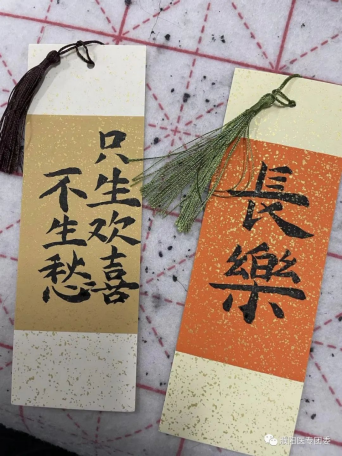 只生欢喜
不生愁
長樂